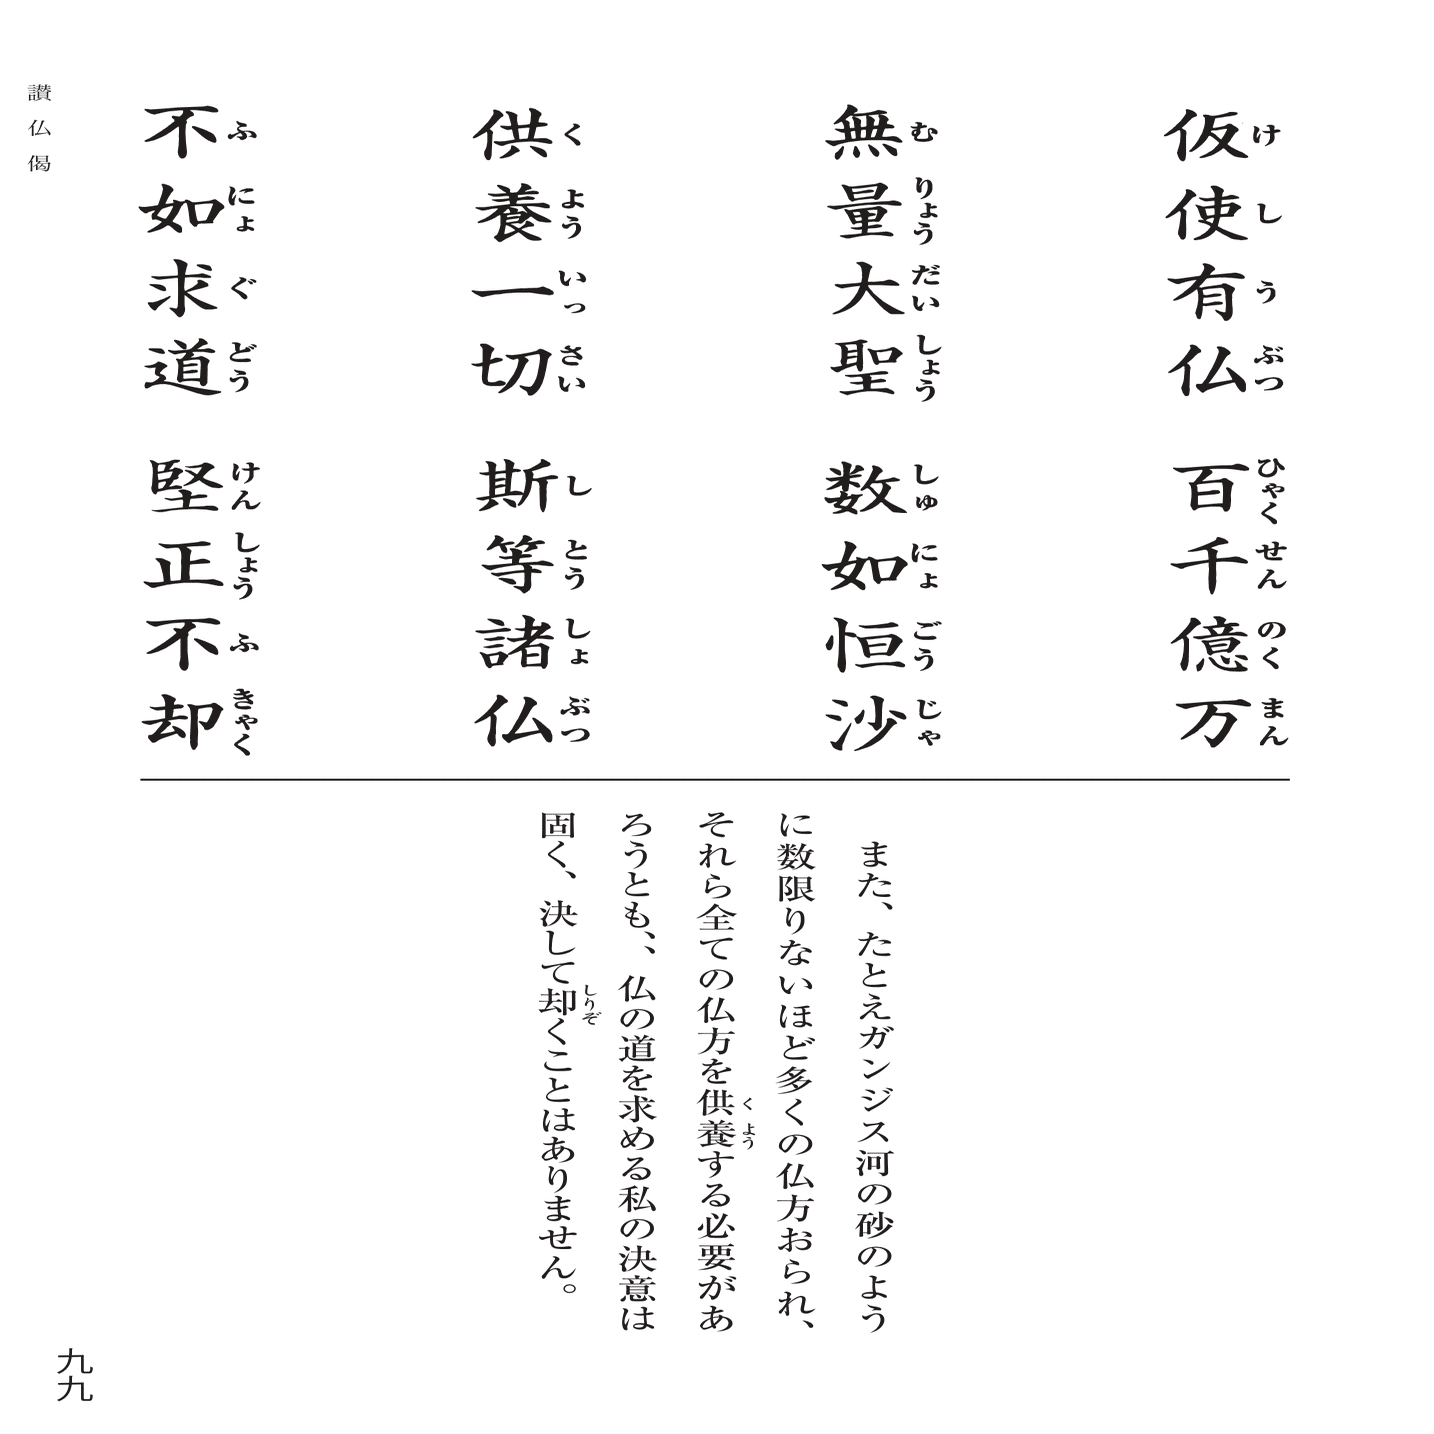 仮使有仏　百千億万
けしうぶつ　ひゃくせんのくまん
無量大聖　数如恒沙
むりょうだいしょう　しゅにょごうじゃ
供養一切　斯等諸仏
くよういっさい　しとうしょぶつ
不如求道　堅正不却
ふにょぐどう　けんしょうふきゃく
また、たとえガンジス河の砂のよう
に数限りないほど多くの仏方おられ、
それら全ての仏方を供養する必要があ
くよう
ろうとも、、仏の道を求める私の決意は
固く、決して却くことはありません。
しりぞ
讃仏偈
九九